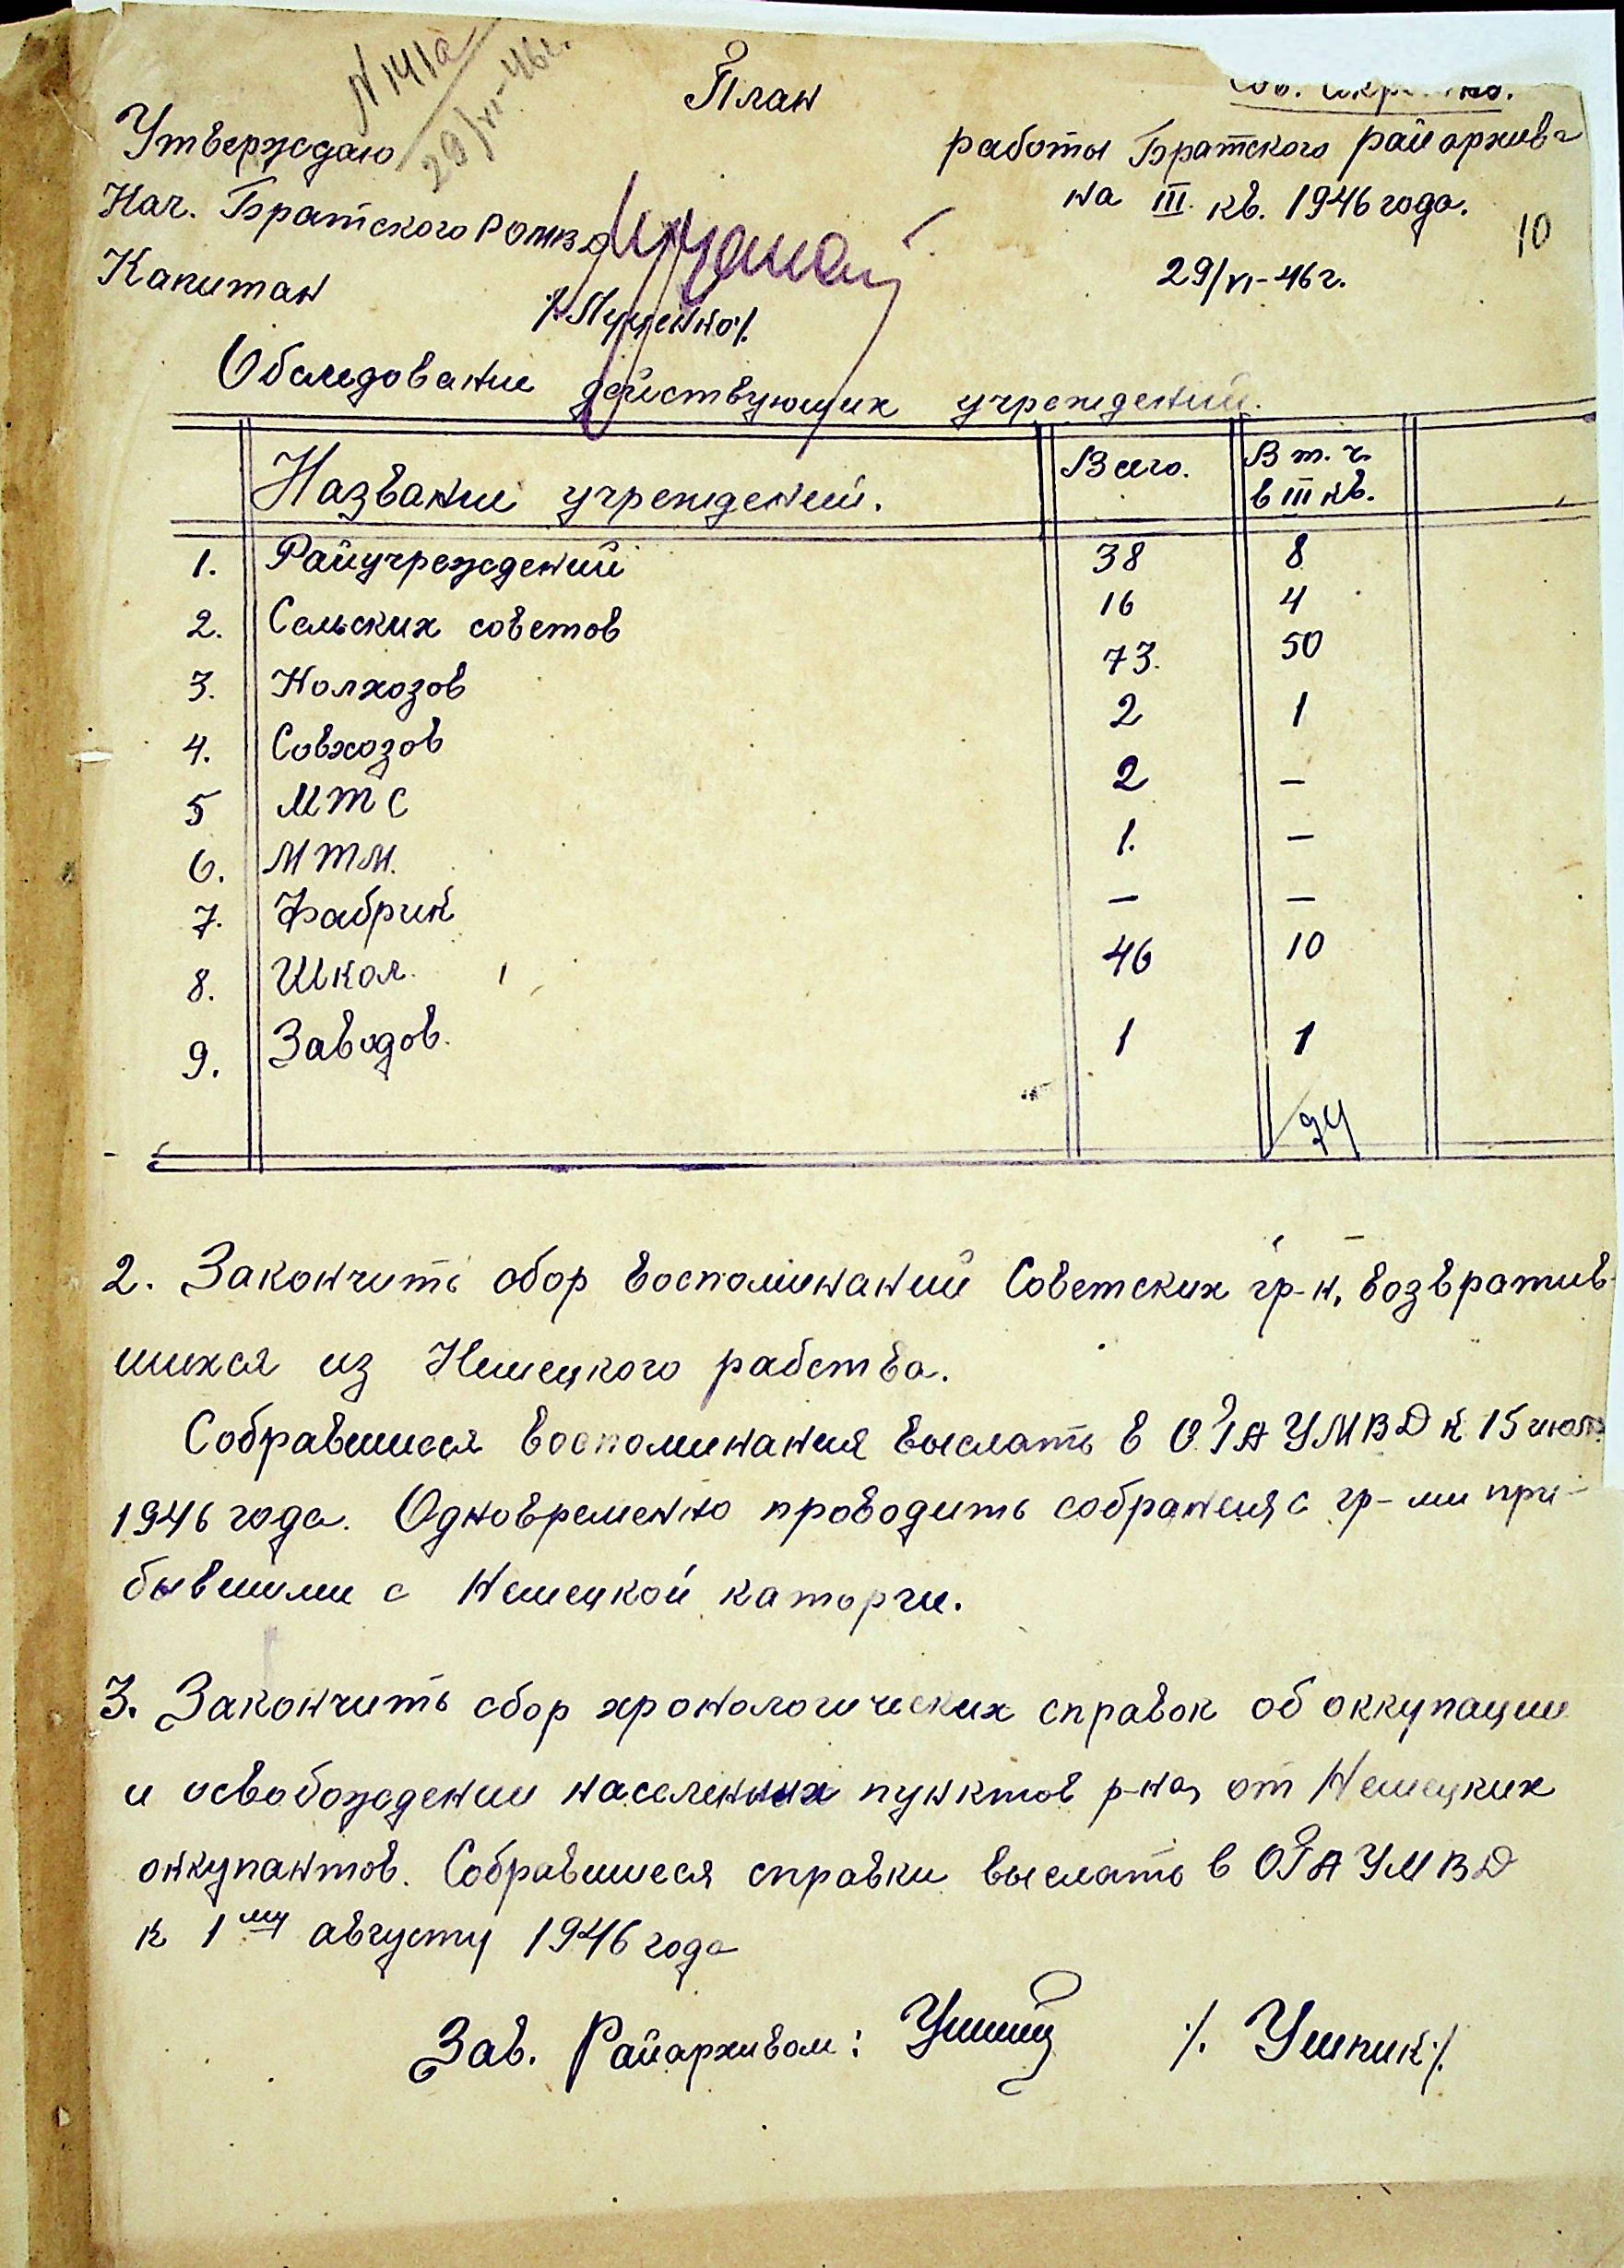 N 141а
29/VI-46г.
План
Сов. Секретно.
Утверждаю
работы Братского райархива
Нач. Братского РОМВД
на III кв. 1946 года.
10
Капитан
29/VI-46г.
Обследование действующих учреждений.
Название учреждений. Всего. В т.ч. в III кв.
1. Райучреждений 38 8
2. Сельских советов 16 4
3. Колхозов 73. 50
4. Совхозов 2 1
5 МТС 2 —
6. МТМ. 1. —
7. Фабрик — —
8. Школ. 46 10
9. Заводов. 1 1
74
2. Закончить сбор воспоминаний Советских гр-н, возвратив-
шихся из Немецкого рабства.
Собравшиеся воспоминания выслать в ОГА УМВД к 15 июля
1946 года. Одновременно проводить собрания с гр-ми при-
бывшими с Немецкой каторги.
3. Закончить сбор хронологических справок об оккупации
и освобождении населенных пунктов р-на, от Немецких
оккупантов. Собравшиеся справки выслать в ОГА УМВД
к 1му августу 1946 года
Зав. Райархивом: /. Ушпик ./.